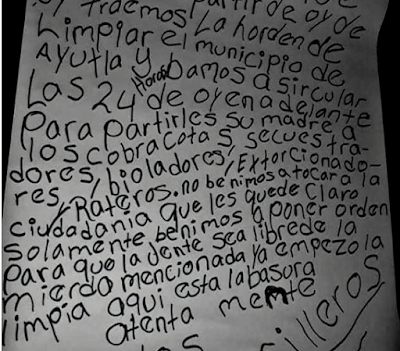 traemos partir de oy de
Limpiar el La horden de
Ayutla y municipio de
Las 24 Horas bamos a sircular
de oy en adelante
Para partirles su madre a
los cobra cotas, secuestra-
dores, bioladores, Extorcionado-
res, Rateros. no benimos a tocar a la
ciudadania que les quede claro
solamente benimos a poner orden
para que la jente sea libre de la
mierda mencionada ya empezo la
limpia aqui esta la basura
atenta mente
illeros